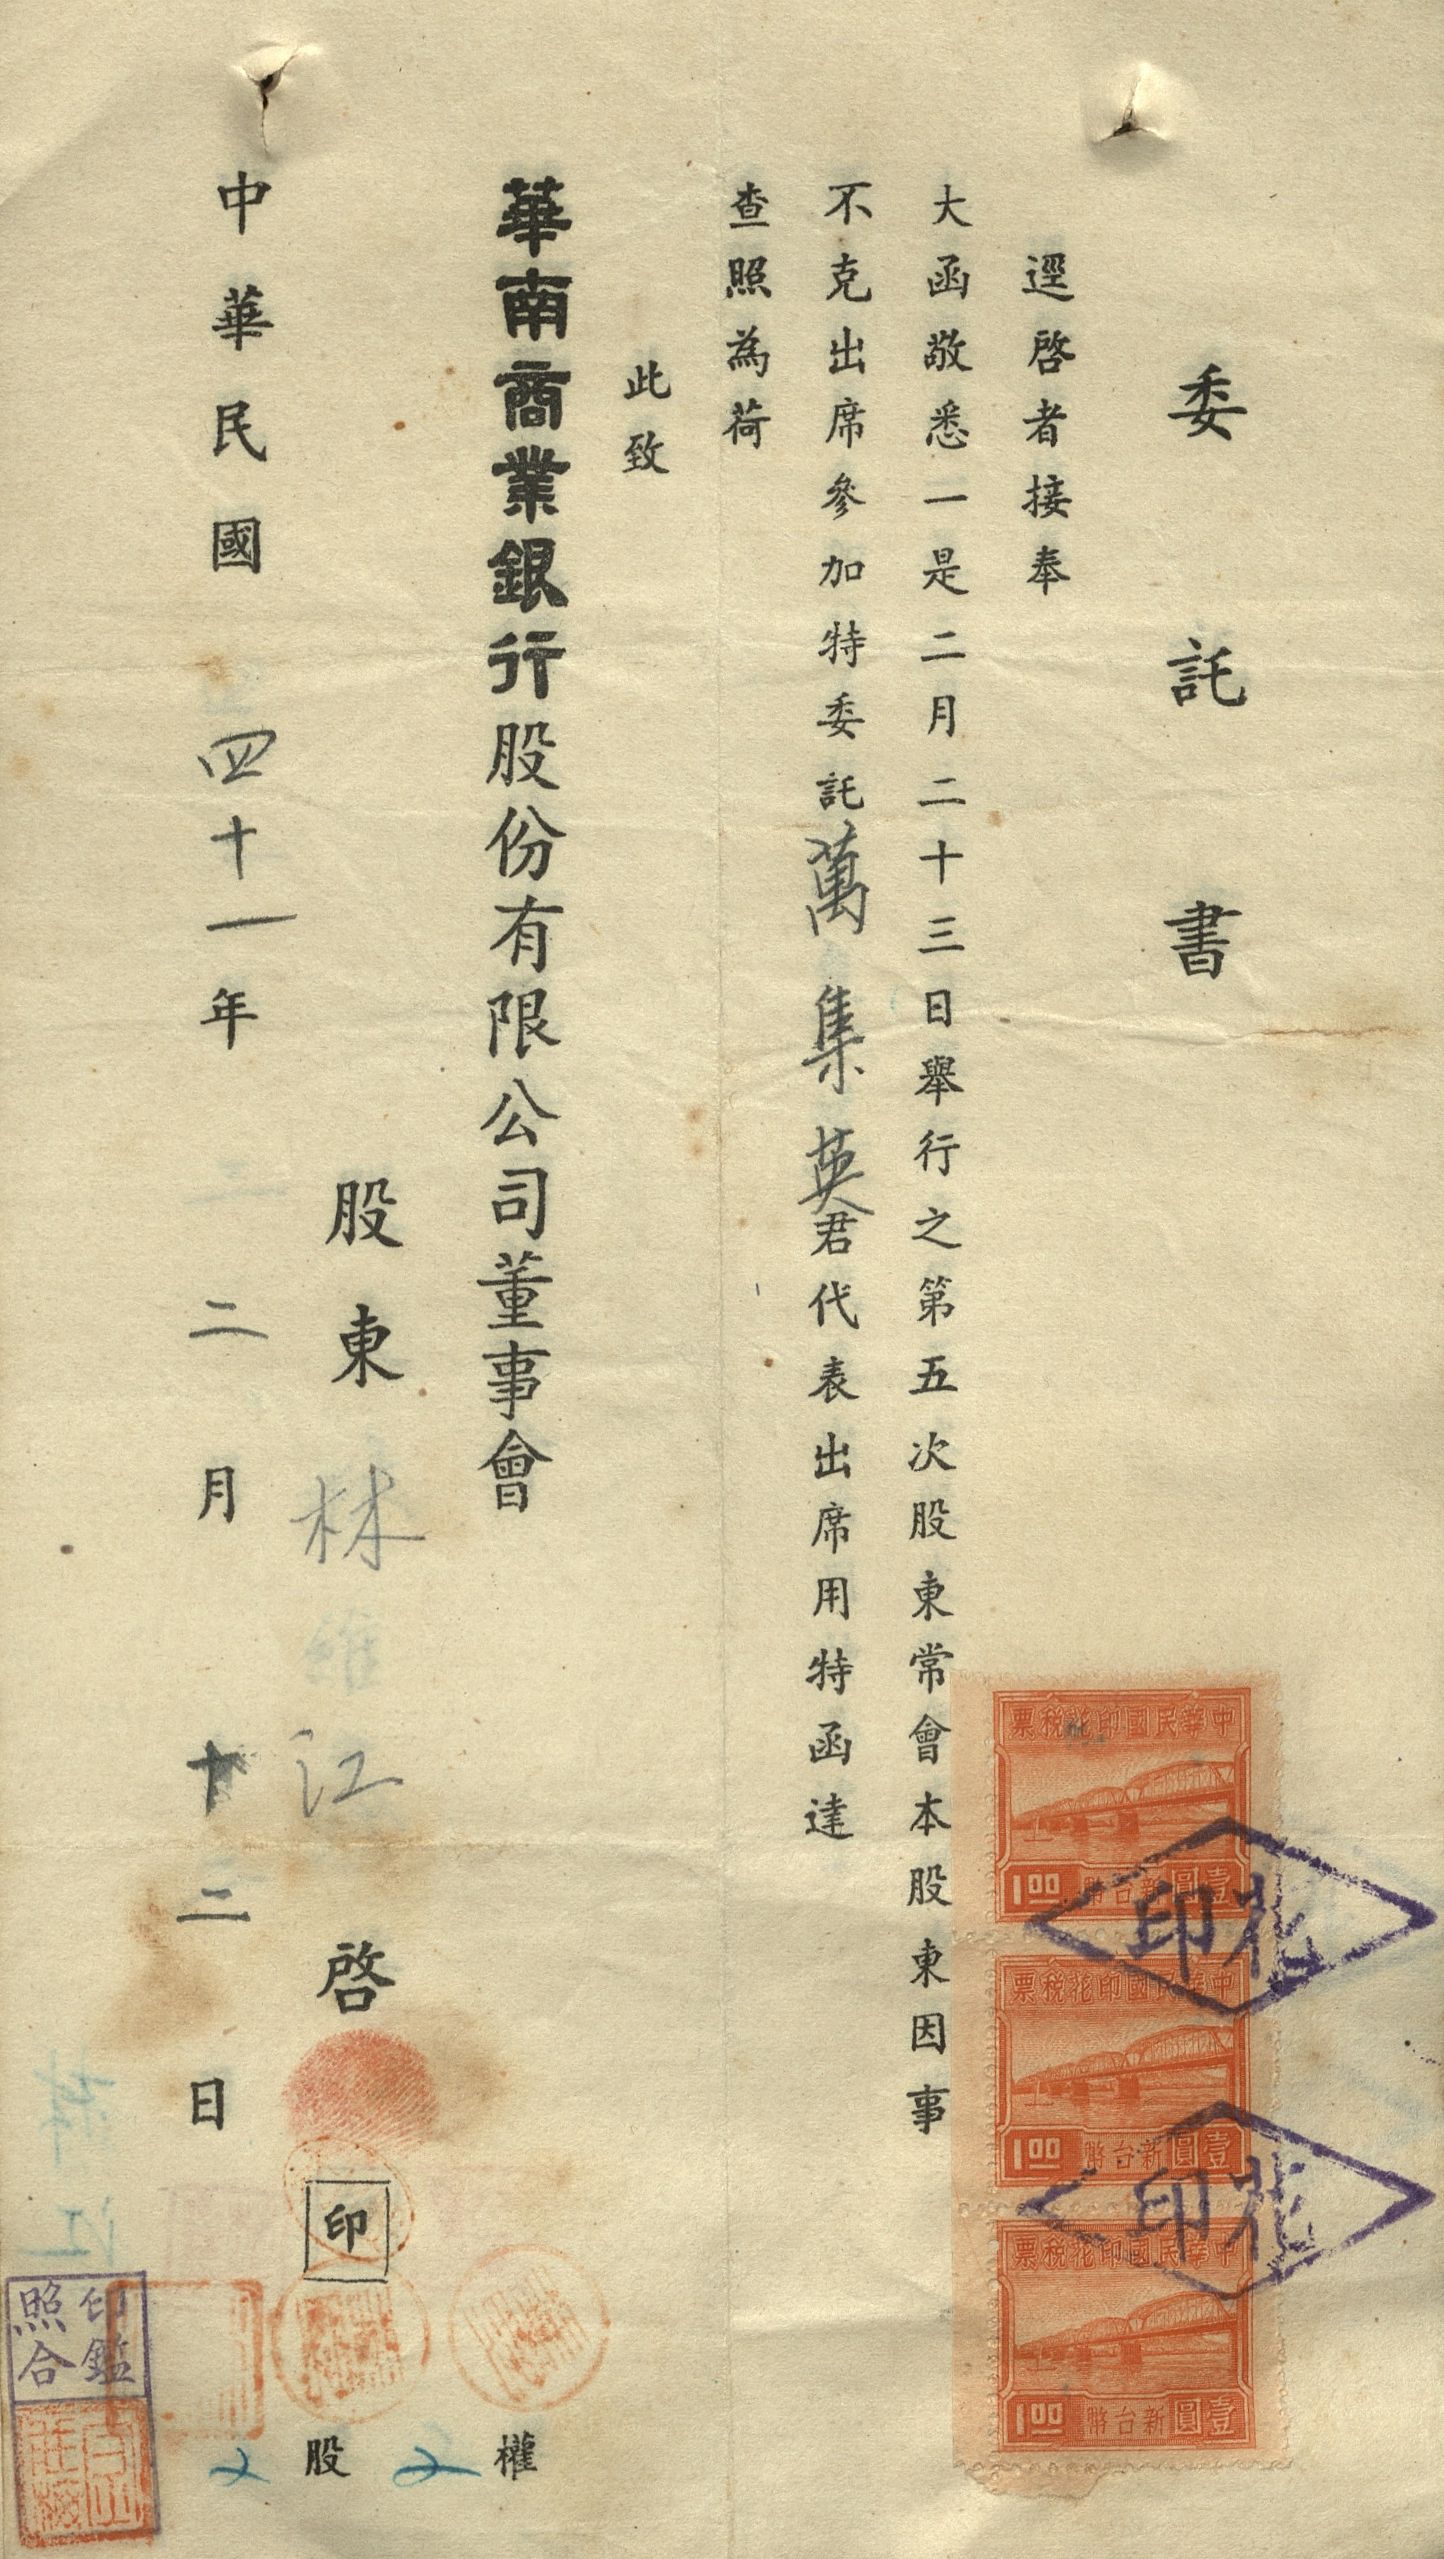 委託書
逕啓者接奉
大函敬悉一是二月二十三日舉行之第五次股東常會本股東因事
不克出席參加特委託萬集英君代表出席用特函達
查照為荷
此致
華南商業銀行股份有限公司董事會
股東 林維江 啓 印
權
股
中華民國四十一年二月十二日
中華民國印花稅票
新台幣壹圓
1.00
中華民國印花稅票
新台幣壹圓
1.00
中華民國印花稅票
新台幣壹圓
1.00
印花
印花
印鑑
照合